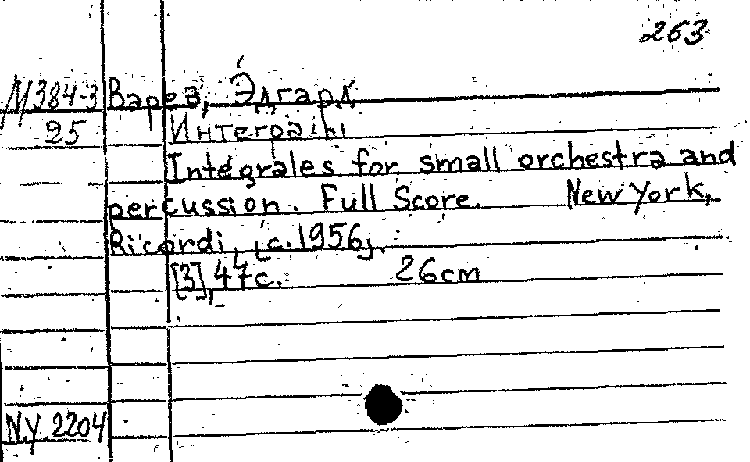 263
М384-3 Варез, Эдгард
25 Интегралы
Intégrales for small orchestra and
percussion. Full Score. New York,
Ricordi, [c.1956].
[3], 47c. 26cm
N.Y 2204